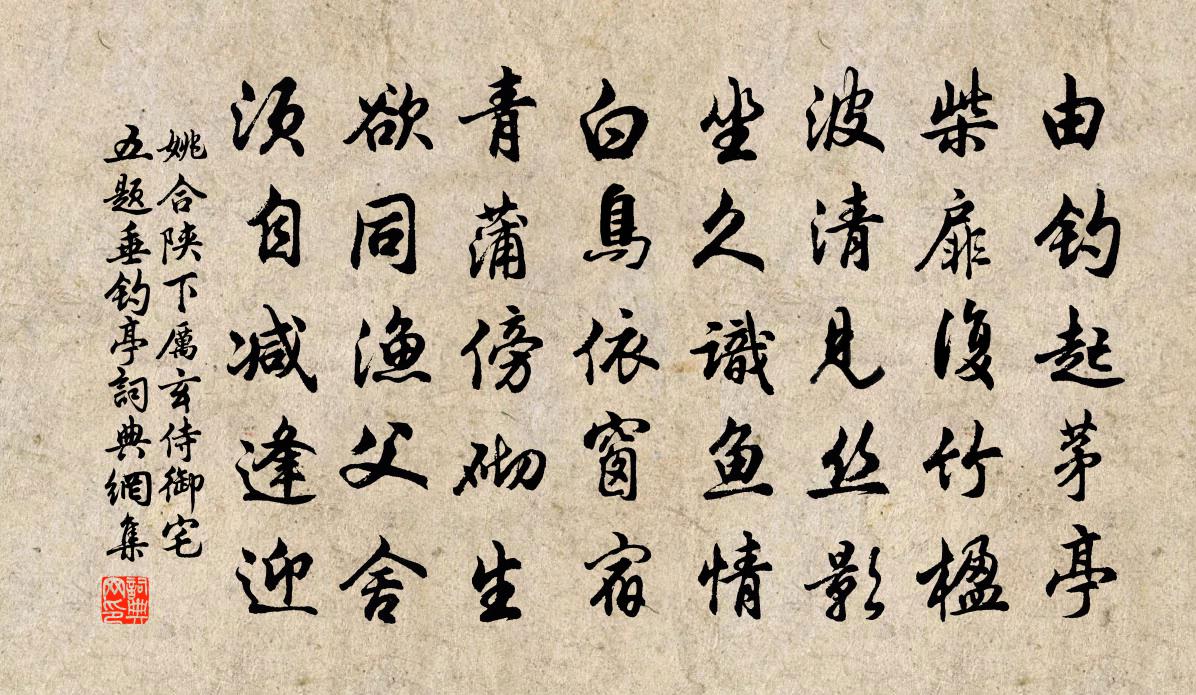 由钓起茅亭
柴扉復竹楹
波清見丝影
坐久識鱼情
白鳥依窗宿
青蒲傍砌生
欲同渔父舍
须自减逢迎
姚合陝下厲玄侍御宅
五题垂钓亭詞典網集
詞典